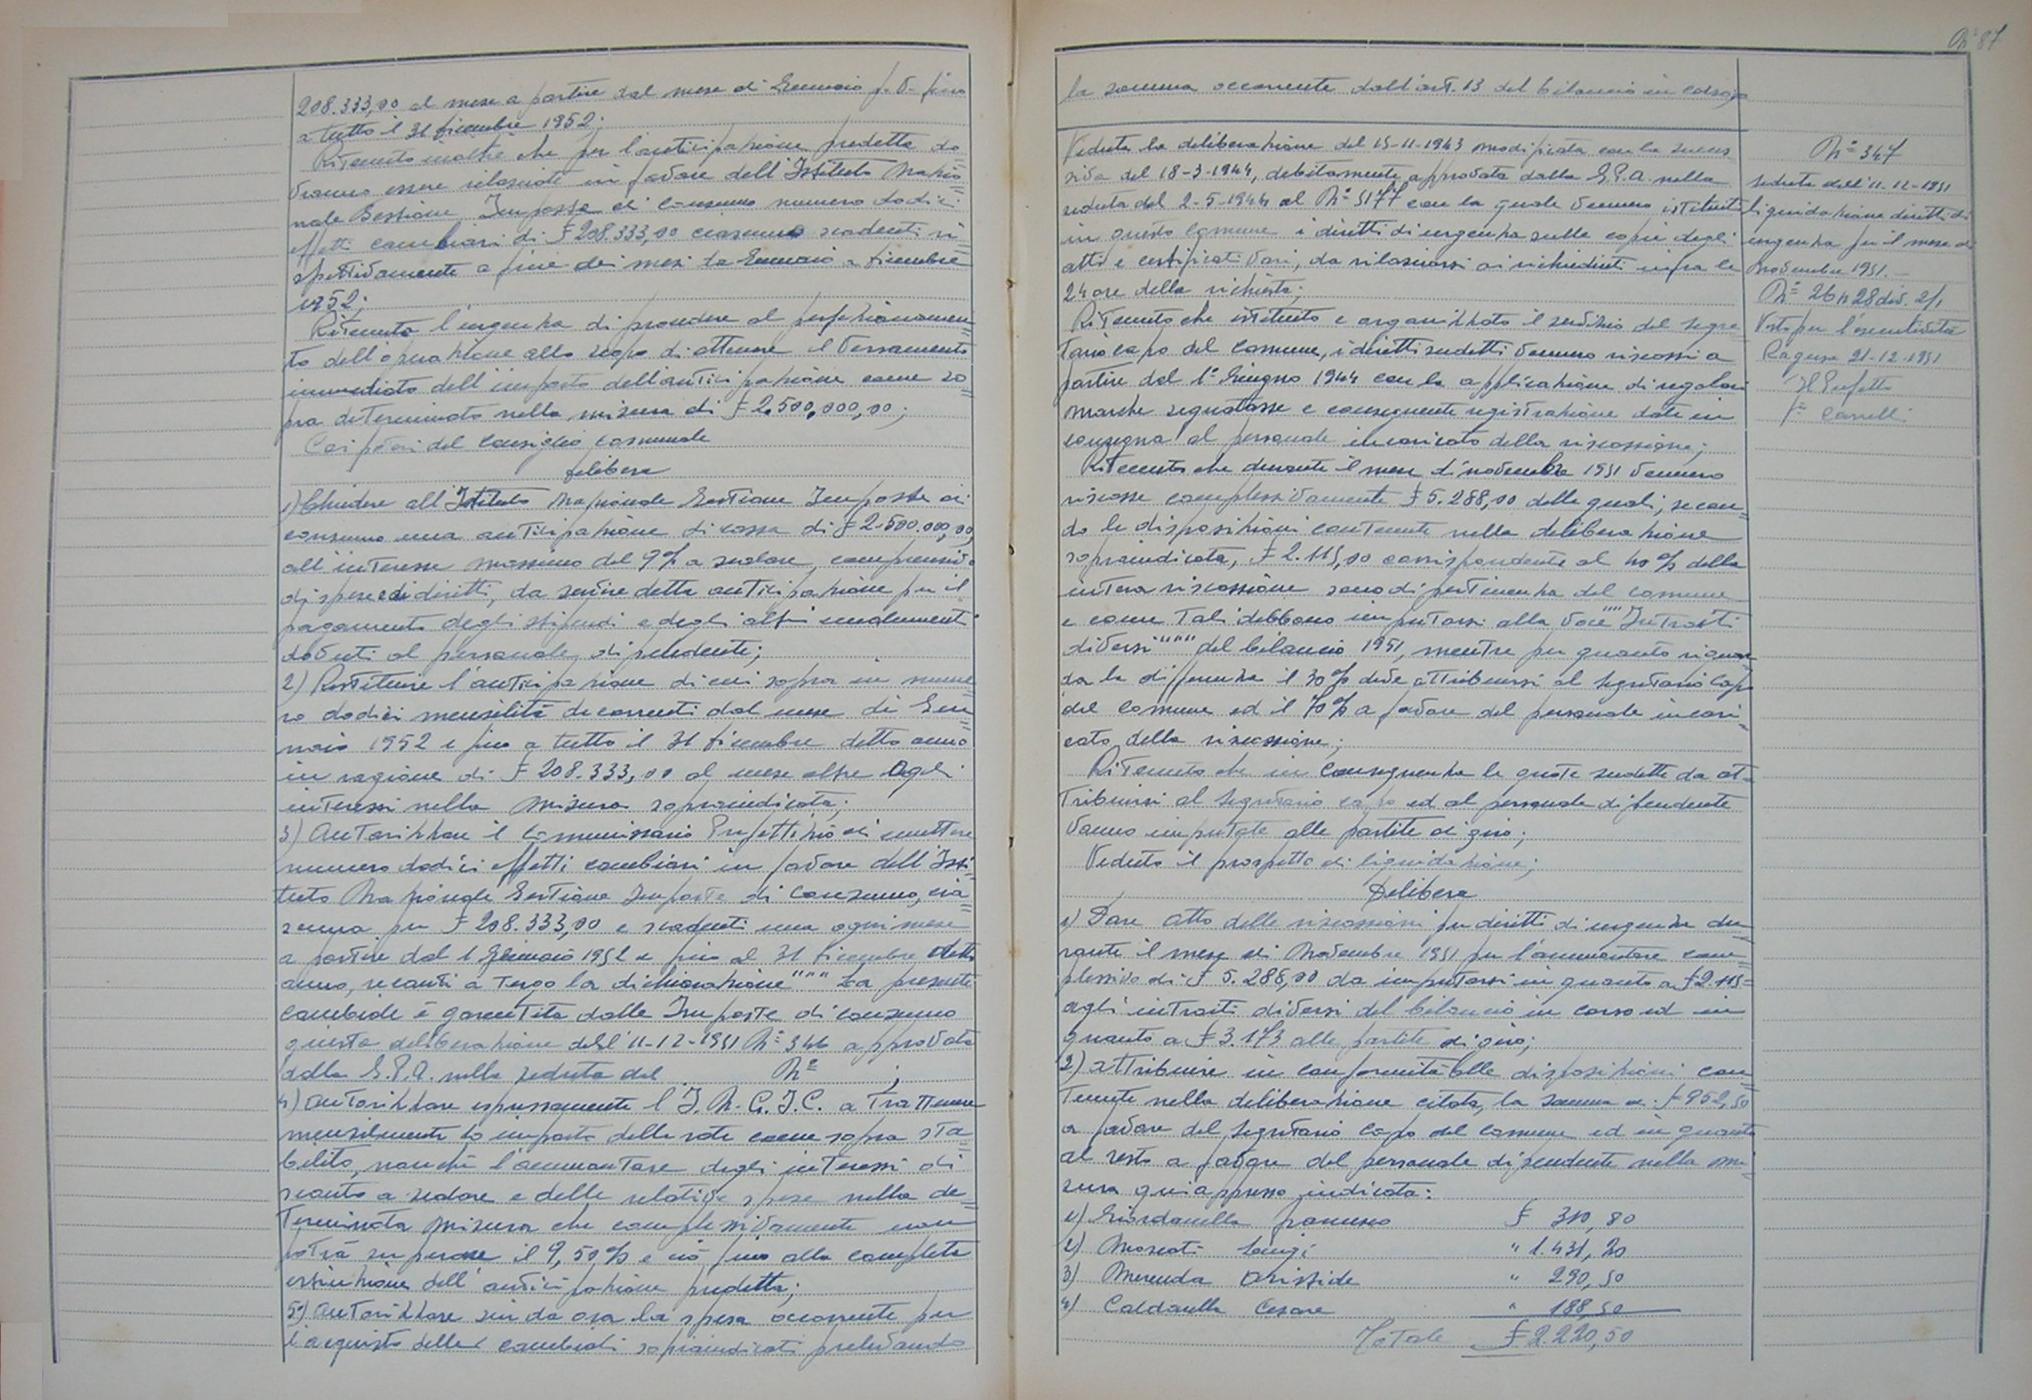 208.333,00 al mese a partire dal mese di Gennaio p.v. fino
a tutto il 31 Dicembre 1952;
Ritenuto inoltre che per l'anticipazione predetta do=
vranno essere rilasciate in favore dell'Istituto Nazio=
nale Gestione Imposte di Consumo numero dodici
effetti cambiari di £ 208.333,00 ciascuno scadenti ri=
spettivamente a fine dei mesi da Gennaio a Dicembre
1952;
Ritenuta l'urgenza di procedere al perfezionamen=
to dell'operazione allo scopo di ottenere il versamento
immediato dell'importo dell'anticipazione come so=
pra determinato nella misura di £ 2.500.000,00;
Coi poteri del Consiglio Comunale
Delibera
1) Chiedere all'Istituto Nazionale Gestione Imposte di
consumo una anticipazione di cassa di £ 2.500.000,00,
all'interesse massimo del 9% a scalare, comprensivo
di spese e di diritti, da servire detta anticipazione per il
pagamento degli stipendi e degli altri emolumenti
dovuti al personale dipendente;
2) Restituire l'anticipazione di cui sopra in nume=
ro dodici mensilità decorrenti dal mese di Gen=
naio 1952 e fino a tutto il 31 Dicembre detto anno
in ragione di £ 208.333,00 al mese oltre agli
interessi nella misura sopraindicata;
3) Autorizzare il Commissario Prefettizio di emettere
numero dodici effetti cambiari in favore dell'Isti=
tuto Nazionale Gestione Imposte di Consumo, cia=
scuna per £ 208.333,00 e scadenti una ogni mese
a partire dal 1 Gennaio 1952 e fino al 31 Dicembre detto
anno, recanti a tergo la dichiarazione """ La presente
cambiale è garentita dalle Imposte di consumo
giusta deliberazione dell'11-12-1951 N° 346 approvata
dalla G.P.A. nella seduta del N° ;
4) Autorizzare espressamente l'I.N.G.I.C. a trattenere
mensilmente lo importo delle rate come sopra sta=
bilito, nonchè l'ammontare degli interessi di
sconto a scalare e delle relative spese nella de=
terminata misura che complessivamente non
potrà superare il 9,50% e ciò fino alla completa
estinzione dell'anticipazione predetta;
5°) Autorizzare sin da ora la spesa occorrente per
l'acquisto delle cambiali sopraindicati prelevando
N° 87
la somma occorrente dall'art. 13 del bilancio in corso
Veduta la deliberazione del 15-11-1943 modificata con la succes
siva del 18-3-1944, debitamente approvata dalla G.P.A. nella
seduta del 2-5-1944 al N° 5177 con la quale vennero istituiti
in questo Comune i diritti di urgenza sulle copie degli
atti e certificati vari, da rilasciarsi ai richiedenti infra le
24 ore della richiesta;
Ritenuto che istituito e organizzato il servizio dal segre
tario capo del Comune, i diritti sudetti vennero riscossi a
partire dal 1° Giugno 1944 con la applicazione di regolari
marche segnatasse e conseguente registrazione date in
consegna al personale incaricato della riscossione;
Ritenuto che durante il mese di novembre 1951 vennero
riscosse complessivamente £ 5.288,00 delle quali, secon=
do le disposizioni contenute nella deliberazione
sopraindicata, £ 2.115,00 corrispondente al 40% della
intera riscossione sono di pertinenza del Comune
e come tali debbono imputarsi alla voce """ Introiti
diversi """ del bilancio 1951, mentre per quanto riguar=
da la differenza il 30% deve attribuirsi al Segretario Capo
del Comune ed il 70% a favore del personale incari=
cato della riscossione;
Ritenuto che in conseguenza le quote sudette da at=
tribuirsi al Segretario capo ed al personale dipendente
vanno imputate alle partite di giro;
Veduto il prospetto di liquidazione;
Delibera
1) Dare atto delle riscossioni per diritti di urgenza du=
rante il mese di Novembre 1951 per l'ammontare com=
plessivo di £ 5.288,00 da imputarsi in quanto a £ 2.115=
agli introiti diversi del bilancio in corso ed in
quanto a £ 3.173 alle partite di giro;
2) Attribuire in conformità alle disposizioni con=
tenute nella deliberazione citata, la somma di £ 952,50
a favore del Segretario Capo del Comune ed in quanto
al resto a favore del personale dipendente nella mi
sura qui appresso indicata:
1) Giordanella Francesco £ 310,80
2) Moscati Luigi " 1.431,20
3) Merenda Aristide " 290,50
4) Caldarella Cesare " 188,50
Totale £ 2.220,50
N° 347
Seduta dell'11-12-1951
liquidazione diritti di
urgenza per il mese di
Novembre 1951.-
N° 26428 div. 2/1
Visto per l'esecutività
Ragusa 21-12-1951
Il Prefetto